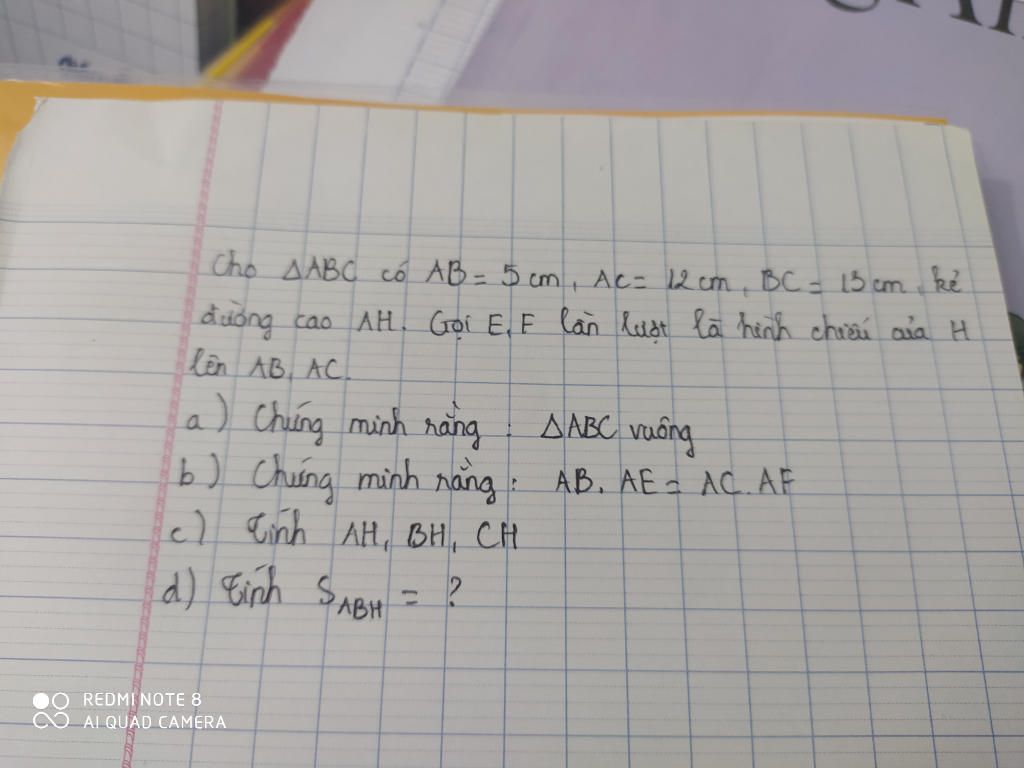 Cho △ABC có AB = 5 cm, AC = 12 cm, BC = 13 cm, kẻ
đường cao AH. Gọi E, F lần lượt là hình chiếu của H
lên AB, AC.
a) Chứng minh rằng : △ABC vuông
b) Chứng minh rằng : AB. AE = AC. AF
c) Tính AH, BH, CH
d) Tính S_ABH = ?
REDMI NOTE 8
AI QUAD CAMERA